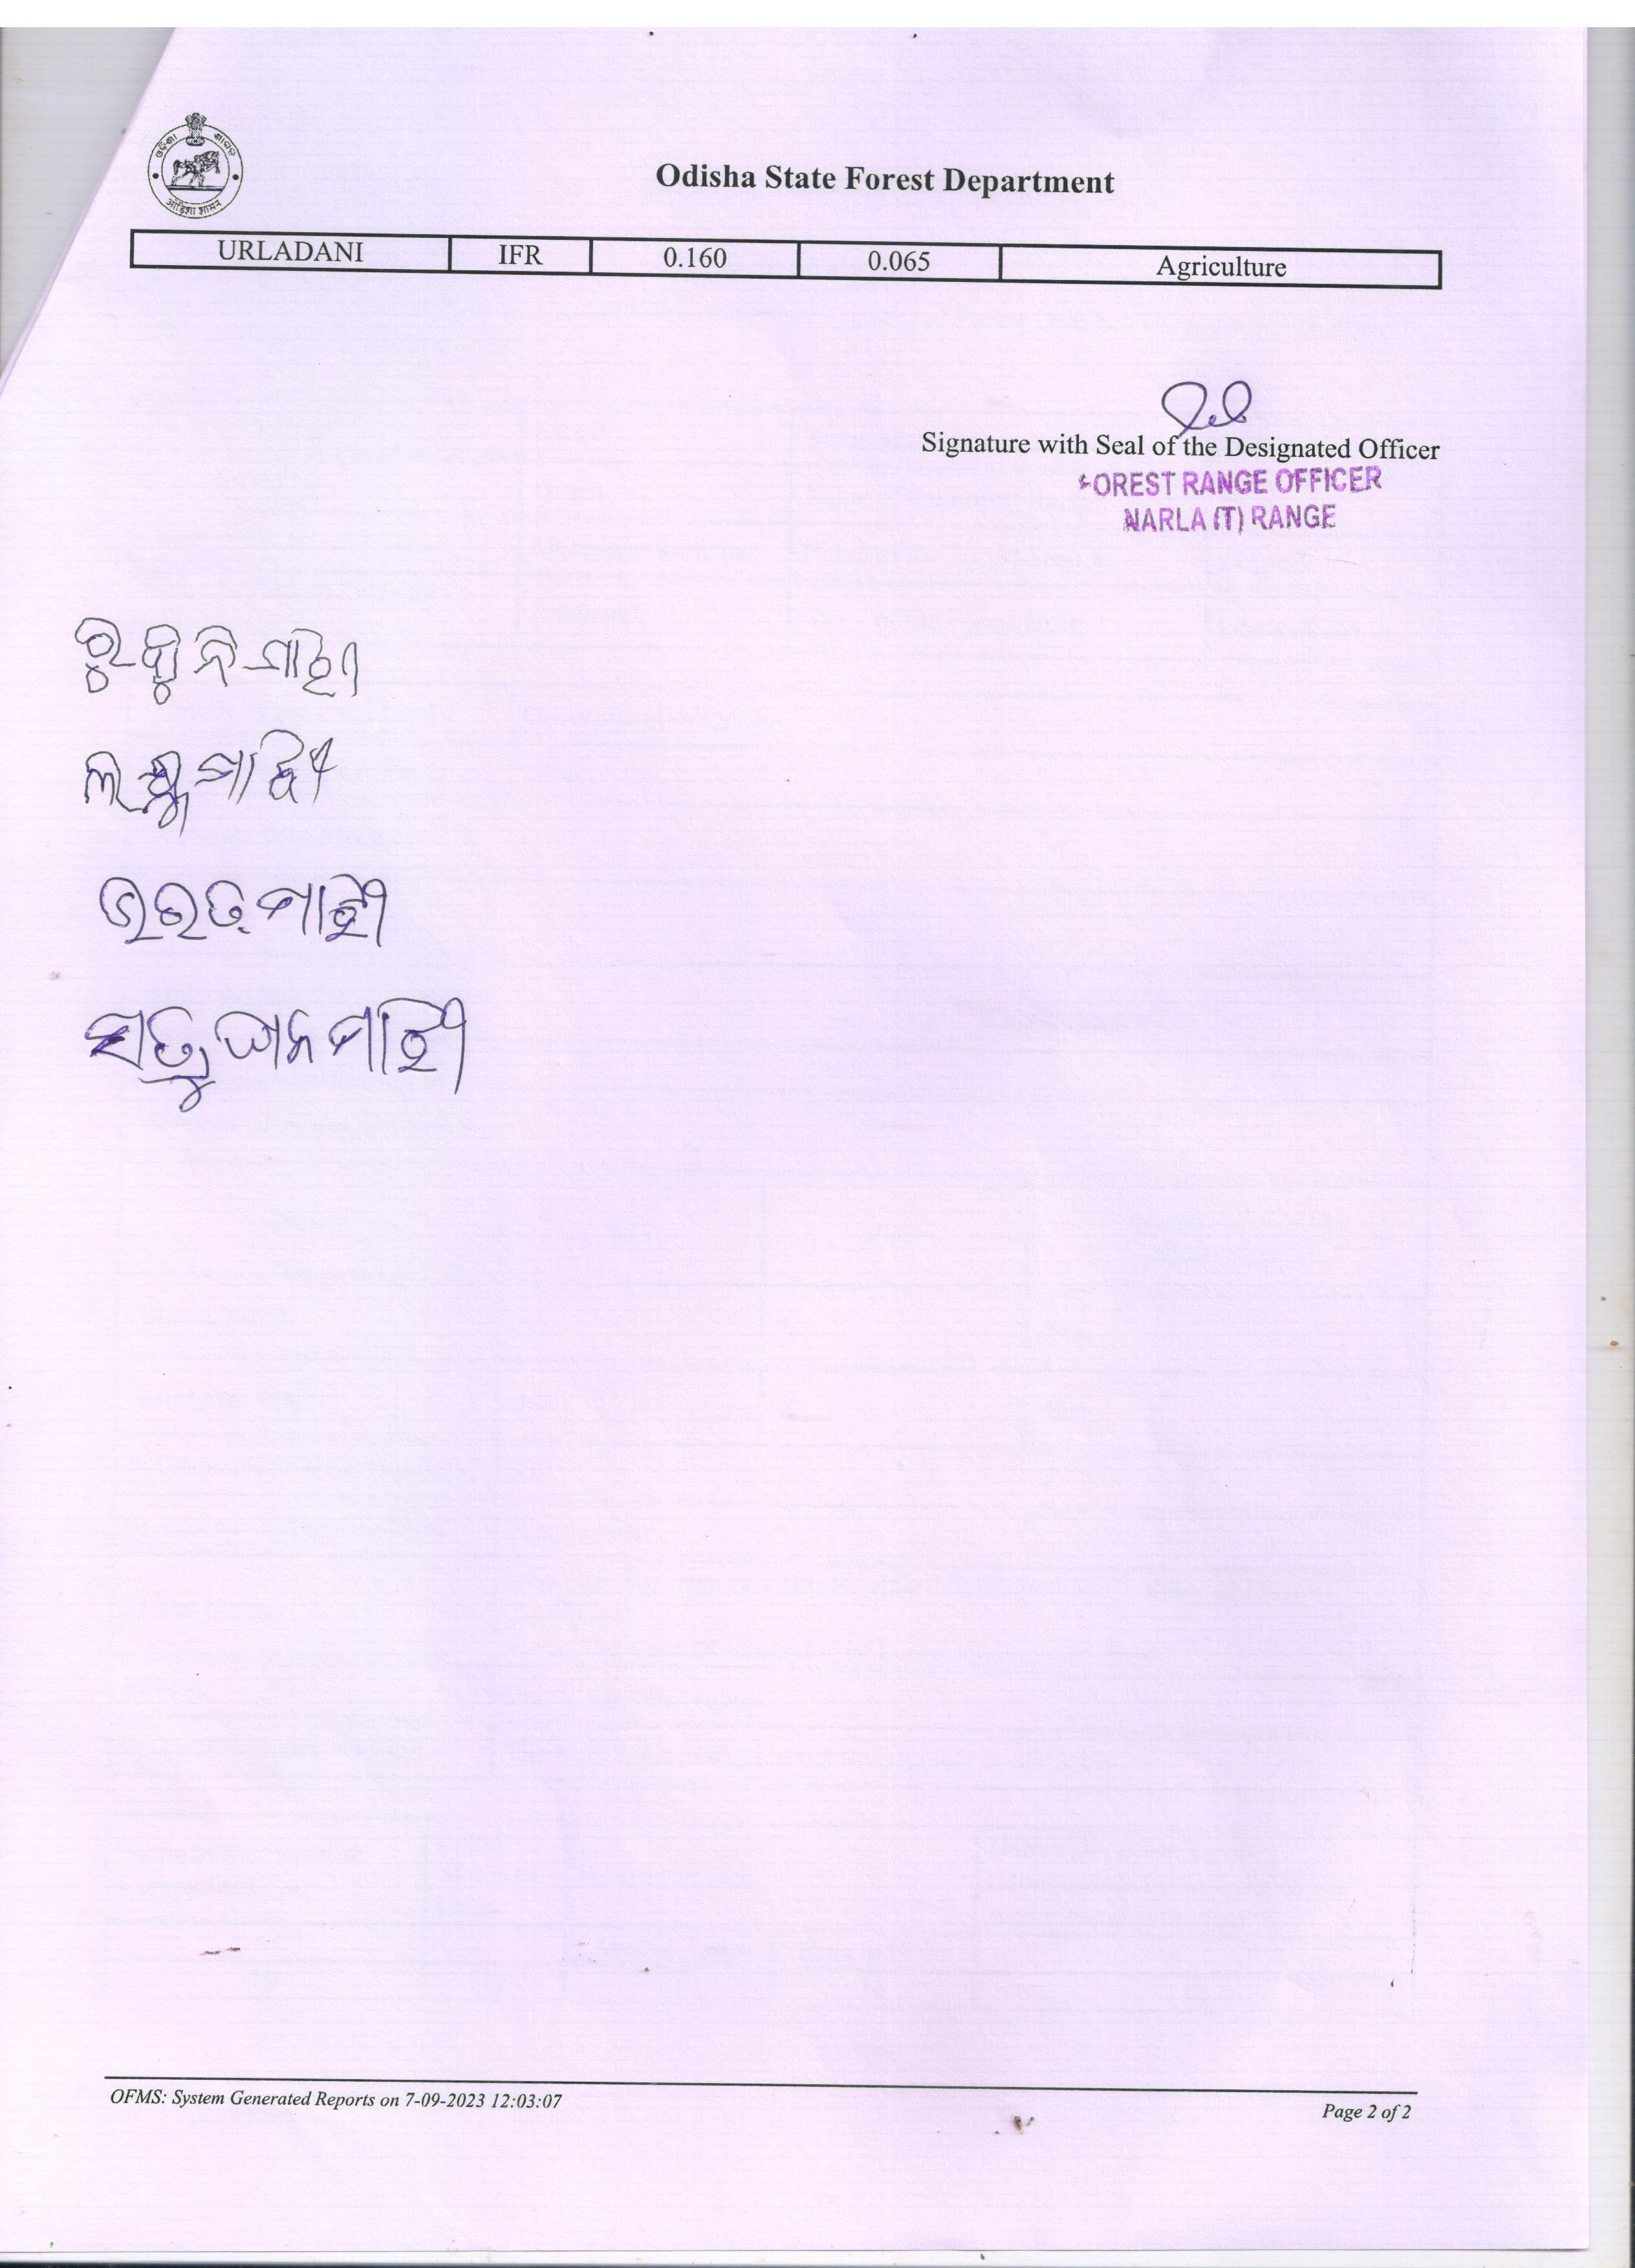 ଓଡ଼ିଶା ଶାସନ
Odisha State Forest Department
URLADANI IFR 0.160 0.065 Agriculture
Signature with Seal of the Designated Officer
FOREST RANGE OFFICER
NARLA (T) RANGE
ମାଝୀ
ମାଝୀ
ଭରତ ମାଝୀ
ମାଝୀ
OFMS: System Generated Reports on 7-09-2023 12:03:07
Page 2 of 2